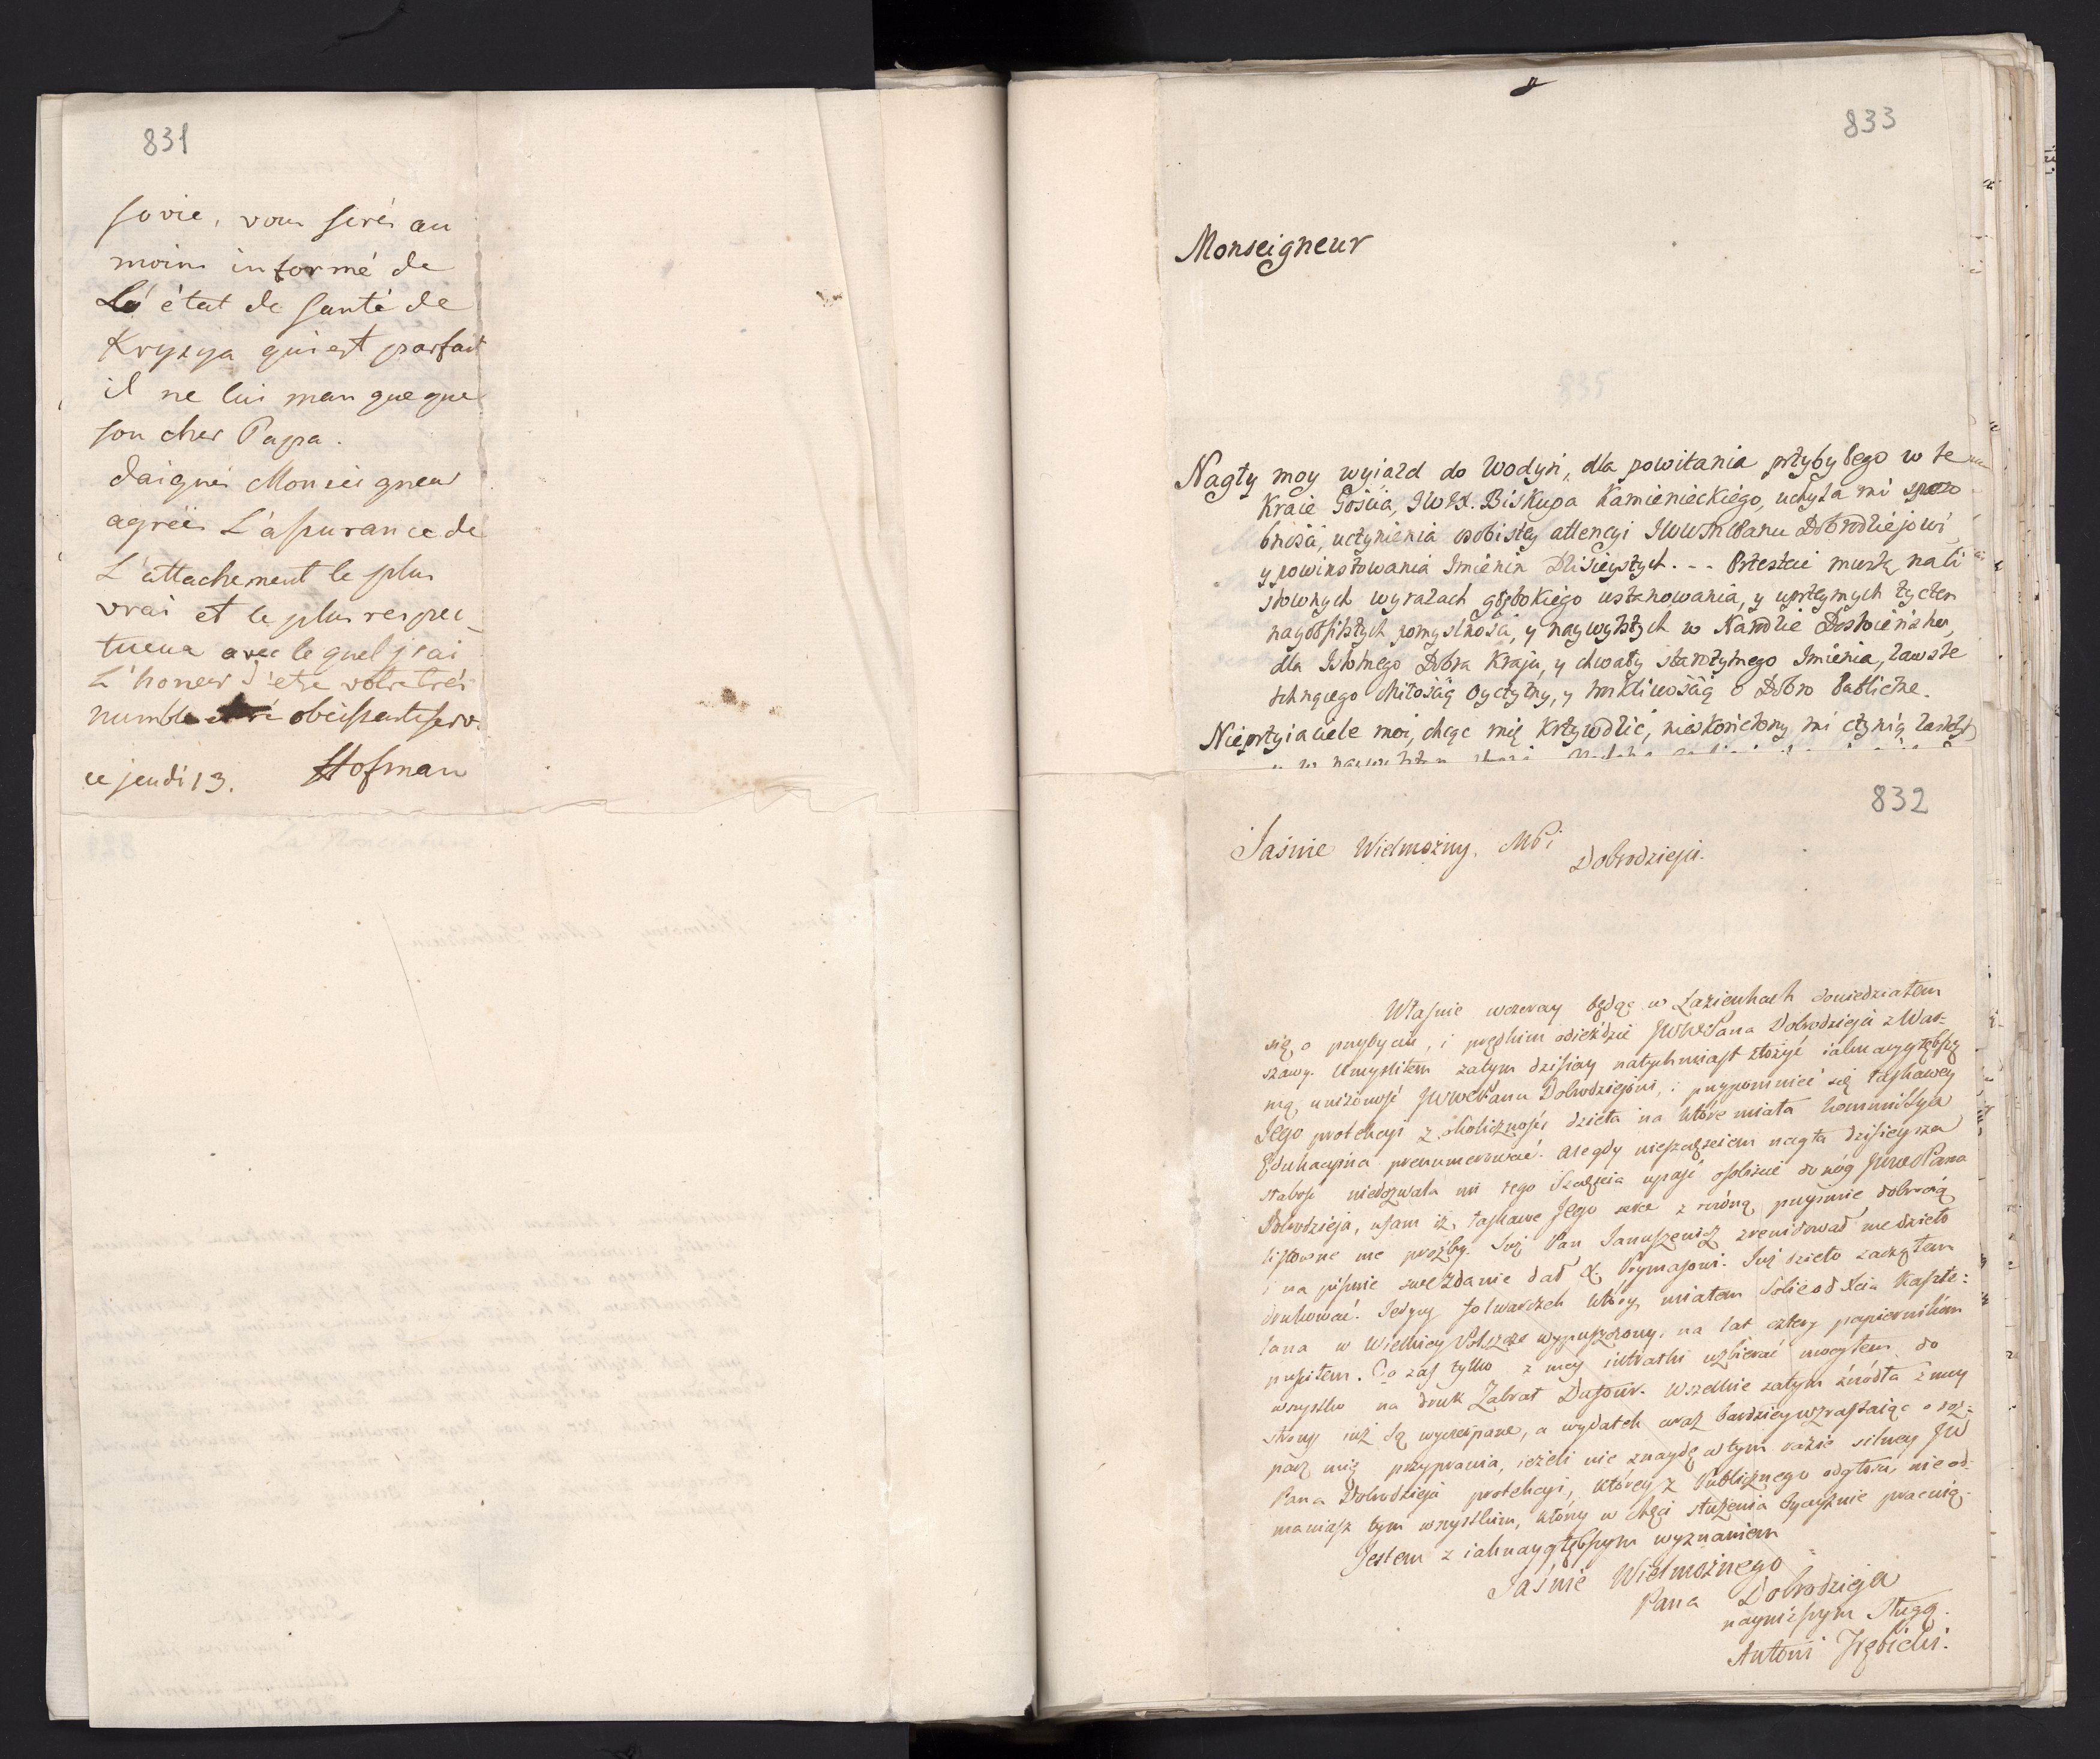 831
sovie, vous serés au
moins informé de
L'état de santé de
Kryzya qui est parfait
il ne lui manque que
son cher Papa.
daignés Monseigneur
agréés L'assurance de
L'attachement le plus
vrai et le plus respec_
tueux avec le quel j'ai
L'honeur d'etre votre trés
humble et obeissant serv.
ce jeudi 13. Hofman
833
Monseigneur
Nagły moy wyiazd do Wodyń, dla powitania przybyłego w te
Kraie Gościa, JWX. Biskupa Kamienieckiego, uchyla mi sposo
bność, uczynienia osobistey attencyi JWWMPanu Dobrodziejowi
y powinszowania Imienin Dzisieyszych. -- Przestać muszę na li
stownych wyrazach głębokiego uszanowania, y uprzeymych życzen
nayobfitszych pomyslności, y naywyższych w Narodzie Dostoieństw,
dla Istotnego Dobra Kraju, y chwały starożytnego Imienia, zawsze
tchnącego Miłością Oyczyzny, y troskliwością o Dobro Publiczne.
Nieprzyiaciele moi, chcąc mię krzywdzić, nieskończony mi czynią zaszczyt
832
Jaśnie Wielmożny, MPi
Dobrodzieju.
Właśnie wczoray będąc w Łazienkach dowiedziałem
się o przybyciu, i prędkim odieździe JWWPana Dobrodzieja z War=
szawy. Umyśliłem zatym dzisiay natychmiast złożyć iaknaygłębszą
mą uniżoność JWWPanu Dobrodziejowi, i przypomnieć się łaskawey
Jego protekcyi z okoliczności dzieła na które miała Kommissya
Edukacyina prenumerować. Ale gdy nieszczęściem nagła dzisieysza
słabość niedozwala mi tego szczęścia upaść osobiście do nóg JWWPana
Dobrodzieja, ufam iż łaskawe Jego serce z równą przyimie dobrocią
listowne me proźby. Już Pan Januszewicz zrewidował me dzieło
i na piśmie swe zdanie dał X. Prymasowi. Już dzieło zacząłem
drukować. Jedyny folwarczek który miałem sobie od Xcia Kaszte:
lana w Wielkiey Polszcze wypuszczony, na lat cztery papiernikom
puściłem. Co zaś tylko z mey intratki uzbierać mogłem, do
wszystko na druk Zabrał Dufour. Wszelkie zatym źródła z mey
strony iuż są wyczerpane, a wydatek coraz bardziey wzrastaiąc o roz=
pacz mię przyprawia, ieżeli nie znaydę w tym razie silney JW
Pana Dobrodzieja protekcyi, którey z Publicznego odgłosu, nie od:
mawiasz tym wszystkim, którzy w chęci służenia Oyczyznie pracuią.
Jestem z iaknaygłębszym wyznaniem
Jaśnie Wielmożnego
Pana Dobrodzieja
nayniższym Sługą.
Antoni Trębicki.